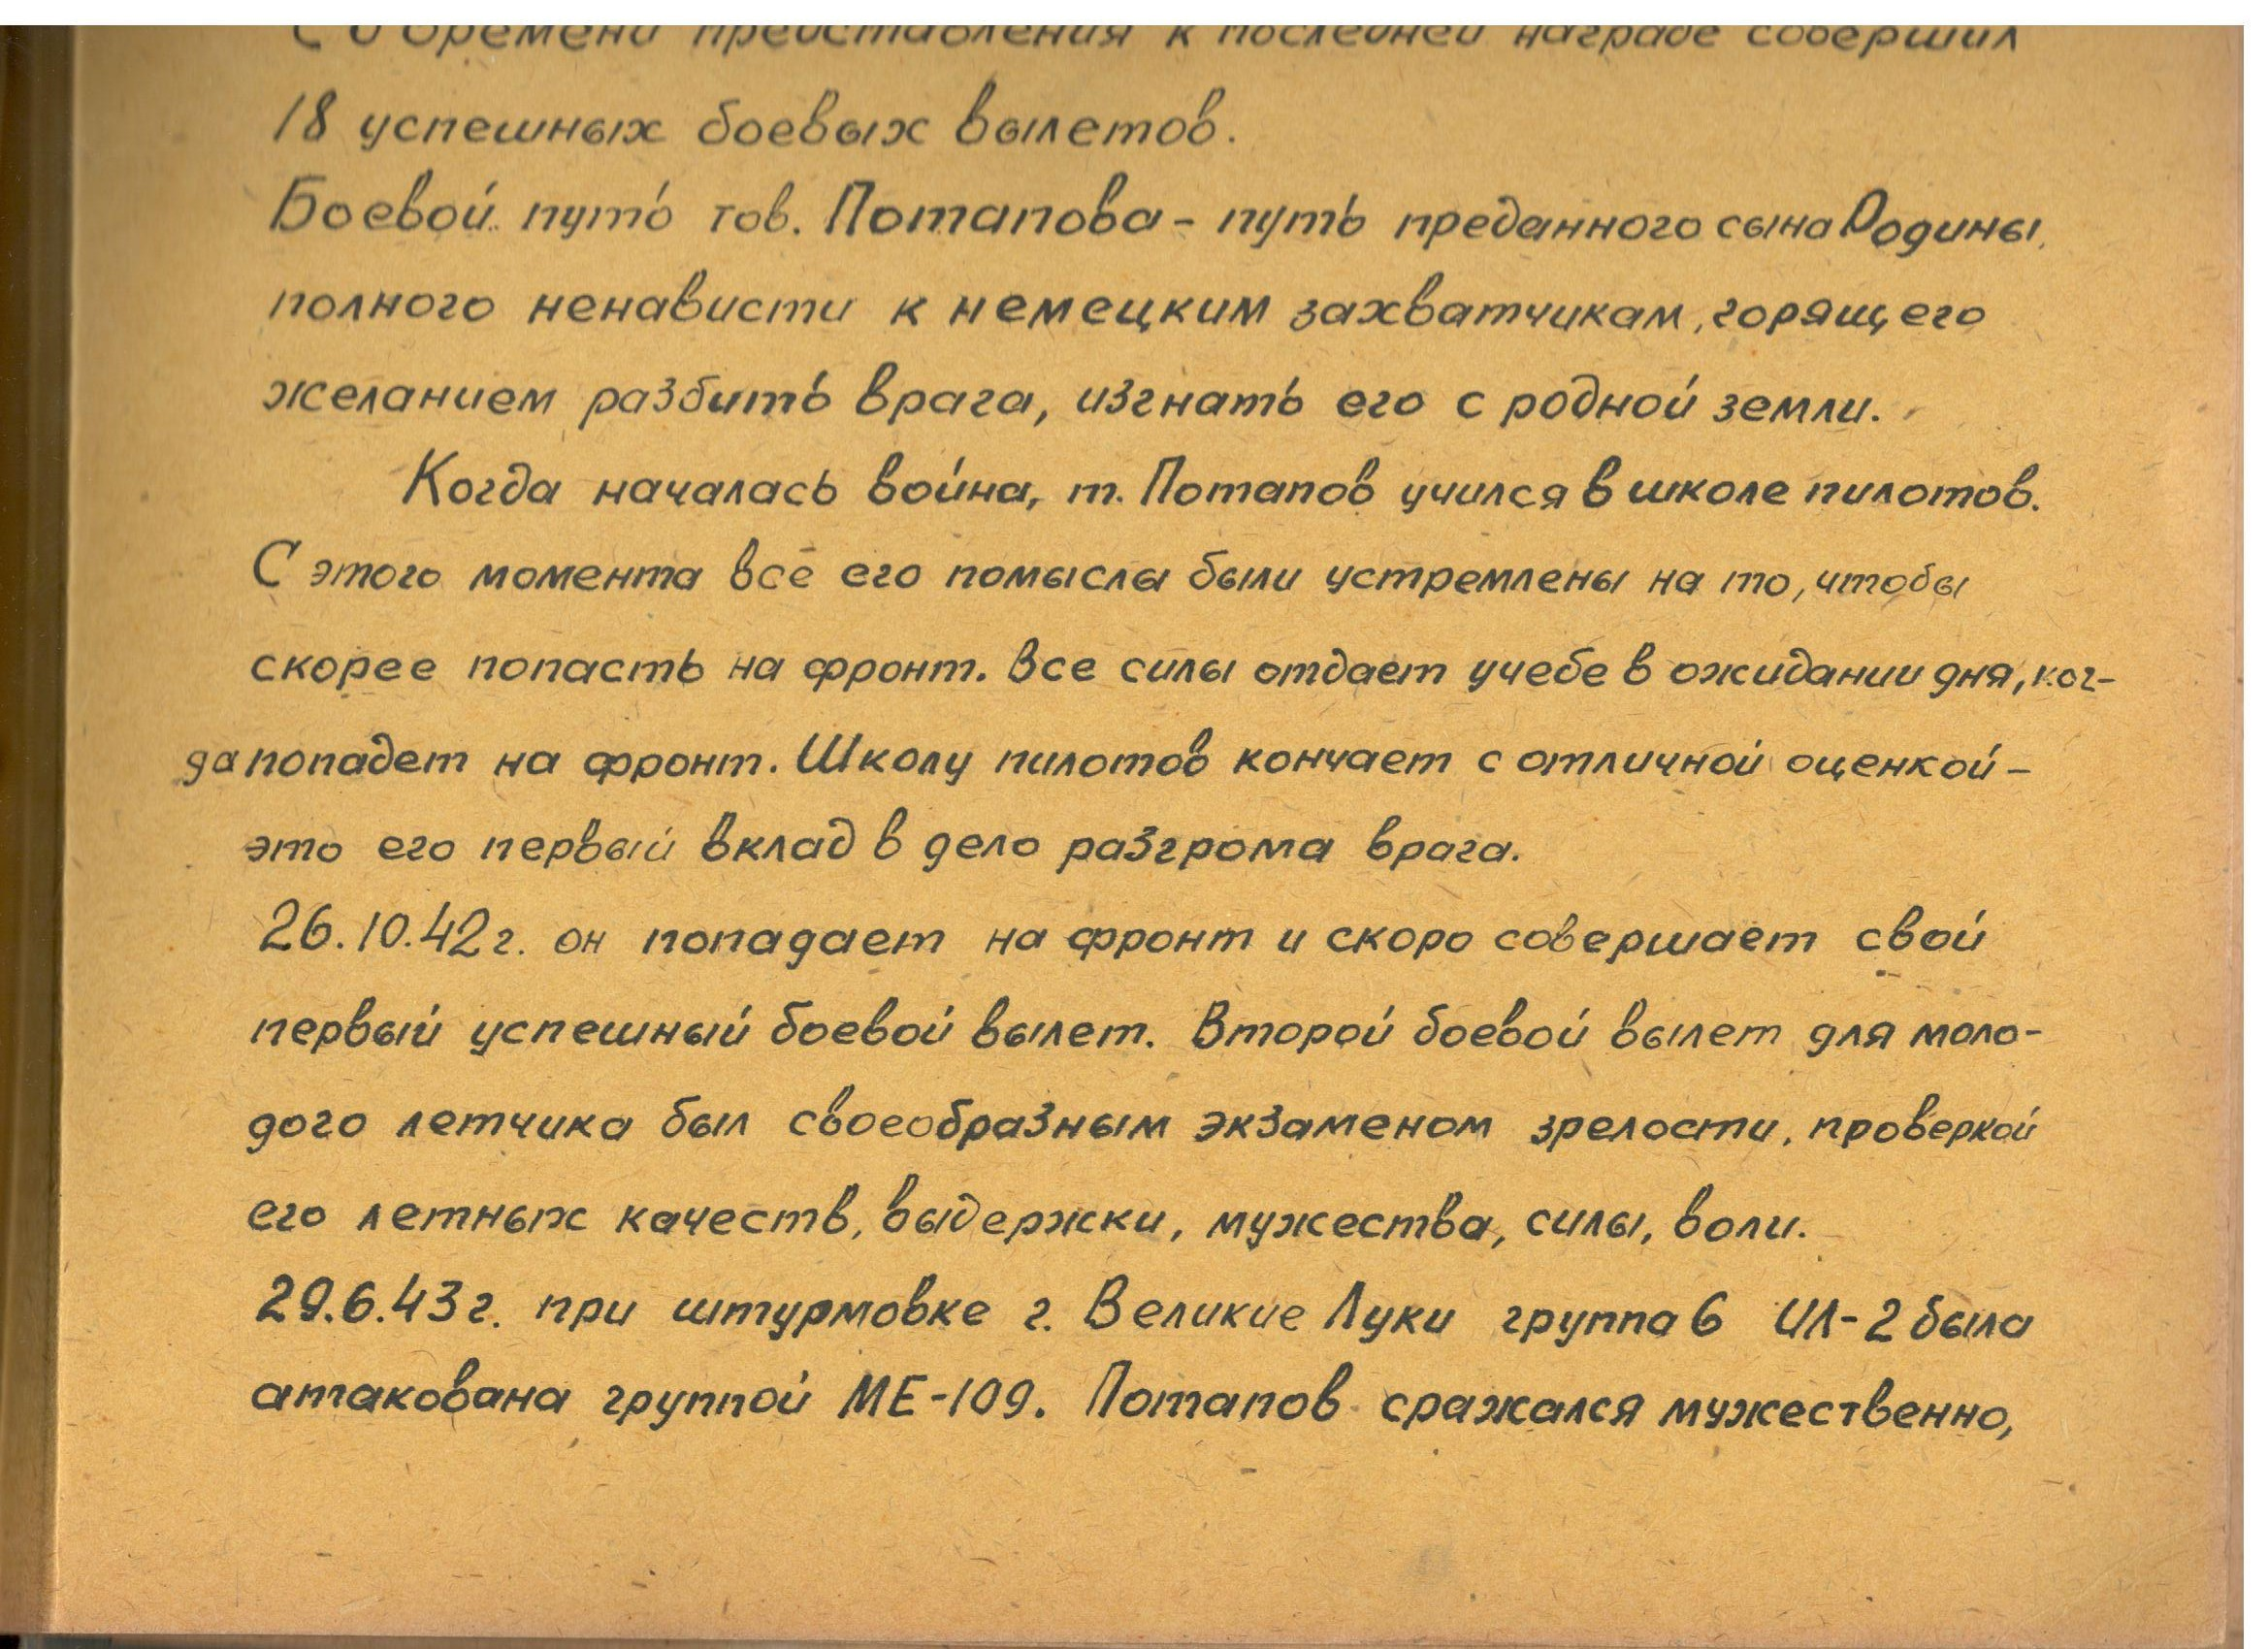 С о времени представления к последней награде совершил
18 успешных боевых вылетов.
Боевой путь тов. Потапова - путь преданного сына Родины,
полного ненависти к немецким захватчикам, горящего
желанием разбить врага, изгнать его с родной земли.
Когда началась война, т. Потапов учился в школе пилотов.
С этого момента все его помыслы были устремлены на то, чтобы
скорее попасть на фронт. Все силы отдает учебе в ожидании дня, ког-
да попадет на фронт. Школу пилотов кончает с отличной оценкой -
это его первый вклад в дело разгрома врага.
26.10.42г. он попадает на фронт и скоро совершает свой
первый успешный боевой вылет. Второй боевой вылет для моло-
дого летчика был своеобразным экзаменом зрелости, проверкой
его летных качеств, выдержки, мужества, силы, воли.
29.6.43г. при штурмовке г. Великие Луки группа 6 ИЛ-2 была
атакована группой МЕ-109. Потапов сражался мужественно,